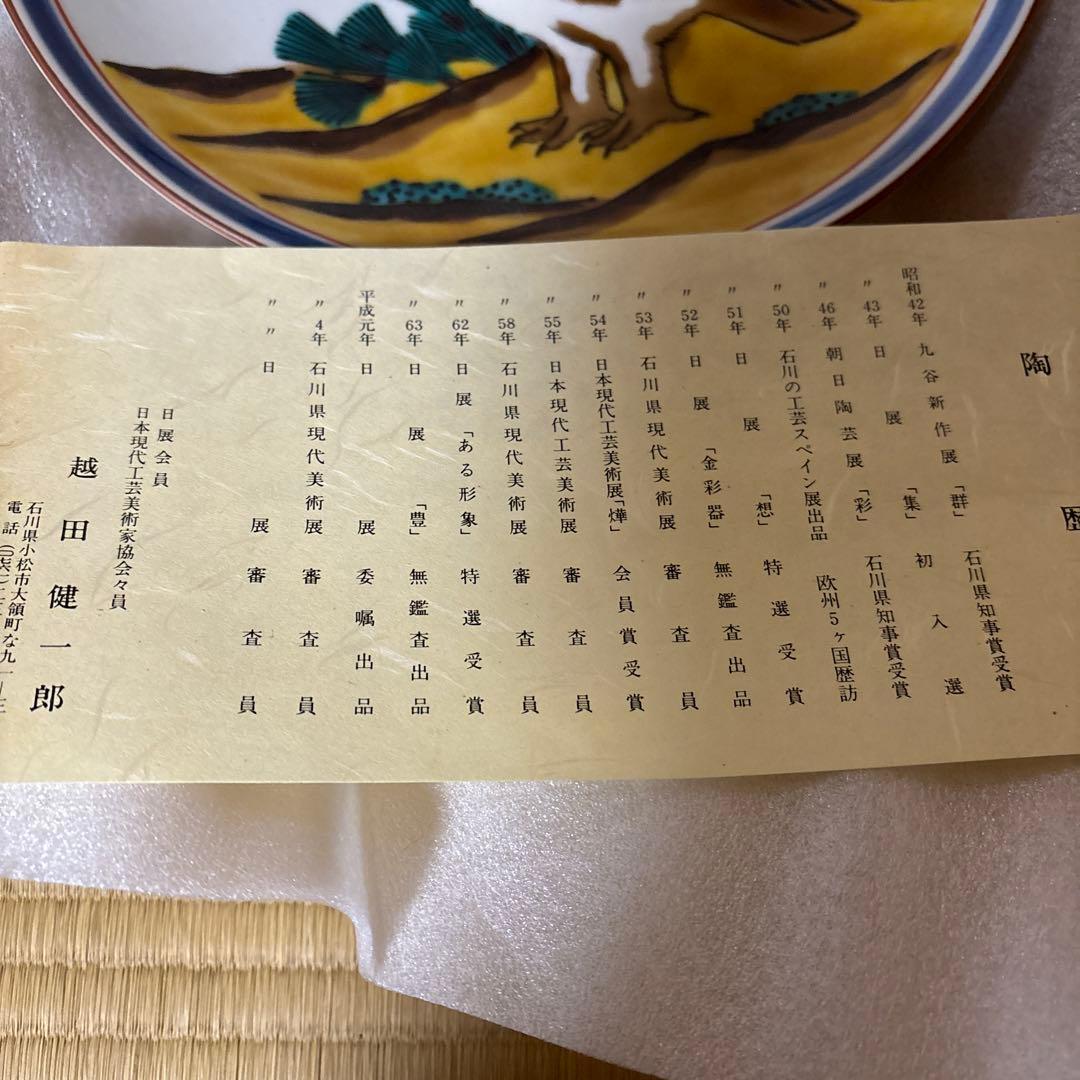 陶歴
昭和42年 九谷新作展「群」 石川県知事賞受賞
〃43年 日展「集」 初入選
〃46年 朝日陶芸展「彩」 石川県知事賞受賞
〃50年 石川の工芸スペイン展出品 欧州5ヶ国歴訪
〃51年 日展「想」 特選受賞
〃52年 日展「金彩器」 無鑑査出品
〃53年 石川県現代美術展 審査員
〃54年 日本現代工芸美術展「燁」 会員賞受賞
〃55年 日本現代工芸美術展 審査員
〃58年 石川県現代美術展 審査員
〃62年 日展「ある形象」 特選受賞
〃63年 日展「豊」 無鑑査出品
平成元年 日展 委嘱出品
〃4年 石川県現代美術展 審査員
〃〃 日展 審査員
日展会員
日本現代工芸美術家協会々員
越田健一郎
石川県小松市大領町な九一ー三
電話